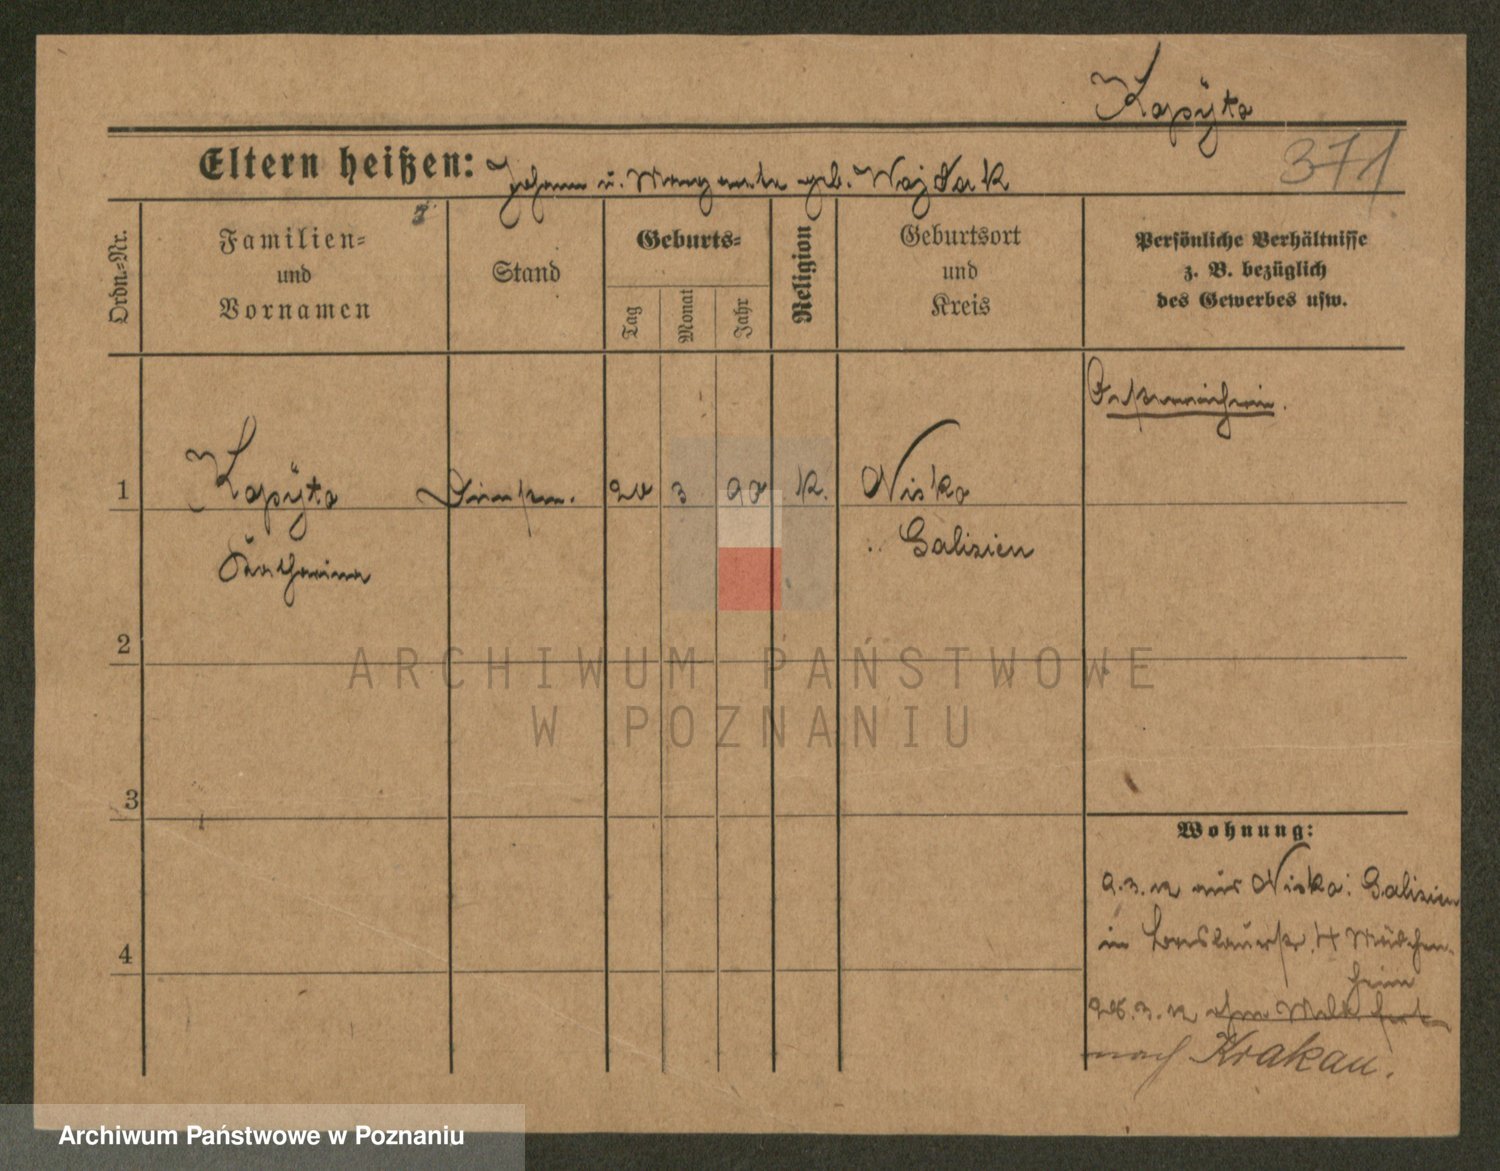 Kapÿta
371
Eltern heißen: Johann u. Margareta geb. Wojtak
Ordn.=Nr.
Familien=
und
Vornamen
Stand
Geburts=
Tag
Monat
Jahr
Religion
Geburtsort
und
Kreis
Persönliche Verhältnisse
z. B. bezüglich
des Gewerbes usw.
Österreicherin.
1
Kapÿta
Katharina
20
3
90
k.
Nisko
Galizien
2
3
4
Wohnung:
9.3.12 aus Nisko: Galizien
in Breslauerstr. Mädchen-
heim
3.12 ohne fort
nach Krakau.
ARCHIWUM PAŃSTWOWE
W POZNANIU
Archiwum Państwowe w Poznaniu